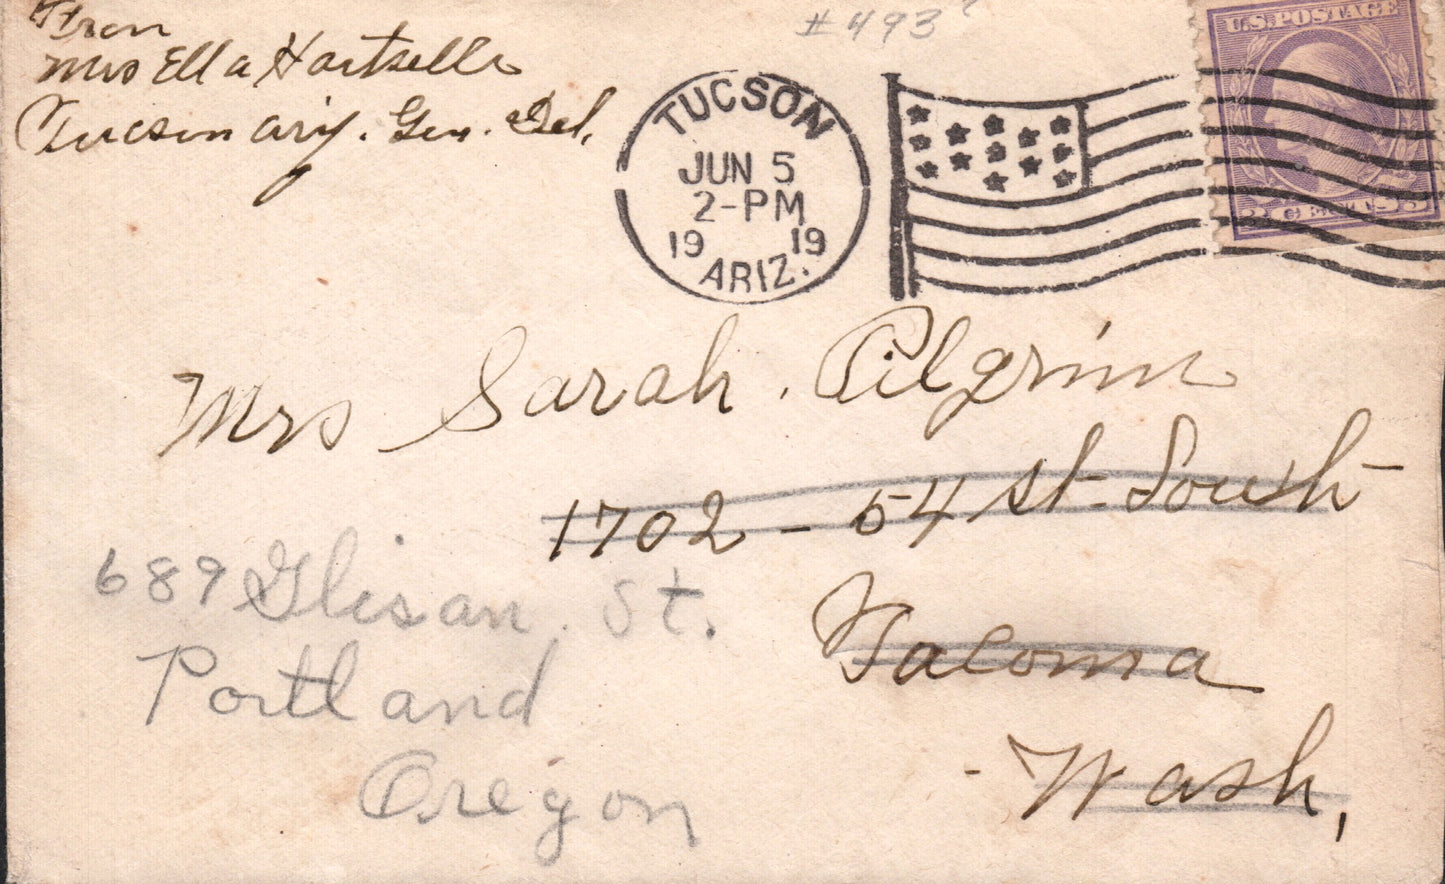 From
Mrs Ella Hartzell
Tucson Ariz. Gen. Del.
#493?
TUCSON
JUN 5
2-PM
1919
ARIZ.
U.S. POSTAGE
3 CENTS 3
Mrs Sarah. Pilgrim
1702 - 54 St. South
Tacoma
Wash,
689 Glisan. St.
Portland
Oregon